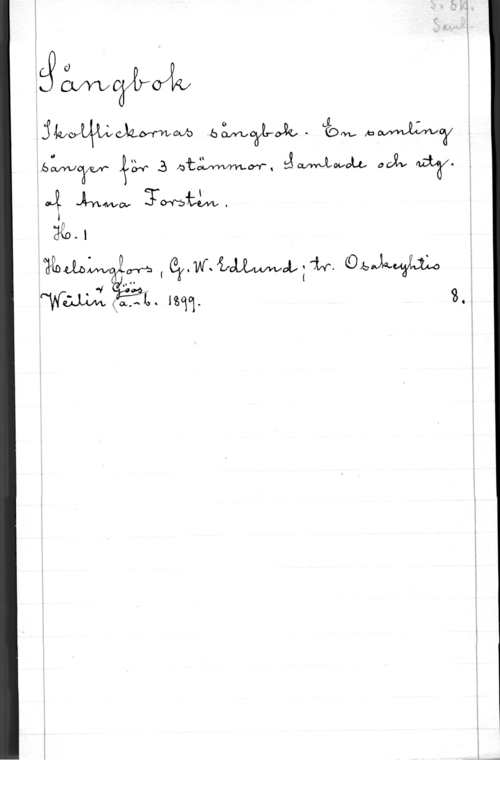 S. Sk.
Saml.
Sångbok
Skolflickornas sångbok. En samling
sånger för 3 stämmor. Samlade och utg.
af Anna Forstén.
H. 1
Helsingfors, G. W. Edlund; tr. Osakeyhtiö
Weilin & Göös a.-b. 1899. 8.